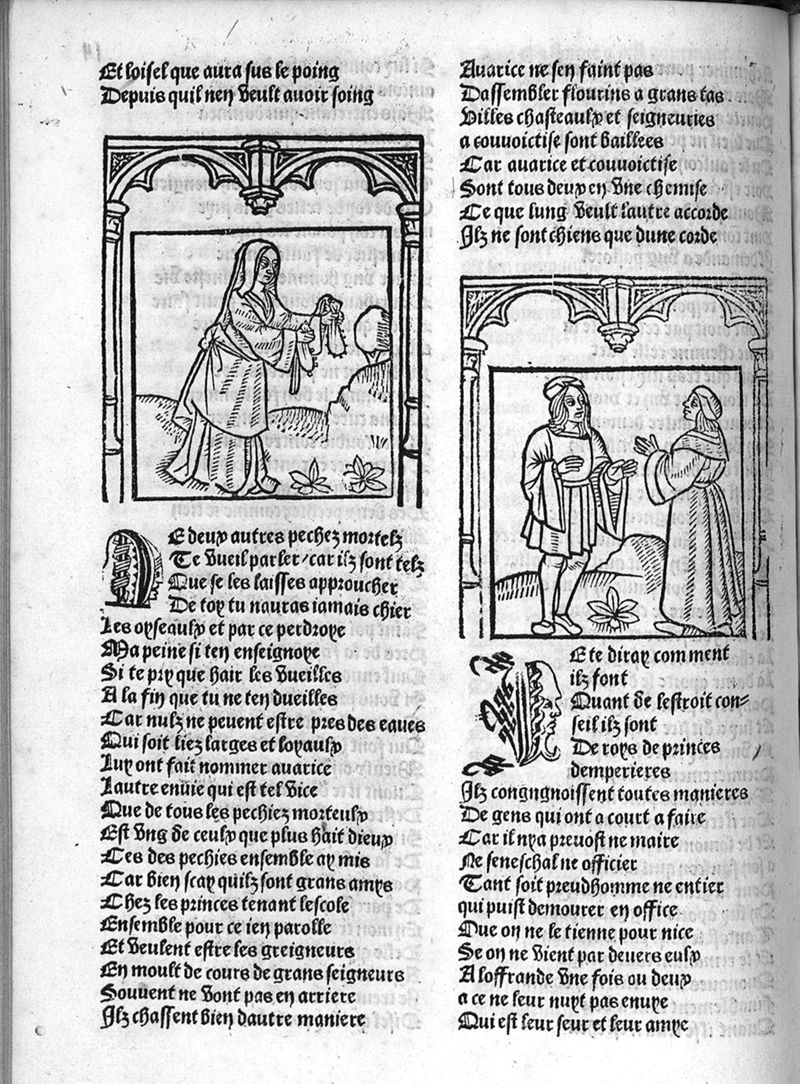 Et loisel que aura sus le poing
Depuis quil nen veult avoir soing
De deux autres pechez mortelz
Te vueil parler/car ilz sont telz
Que se les laisses approucher
De toy tu nauras iamais chier
Les oyseaulx et par ce perdroye
Ma peine si ten enseignoye
Si te pry que hair les vueilles
A la fin que tu ne ten dueilles
Car nulz ne peuent estre pres des eaues
Qui soit liez larges et loyaulx
Luy ont fait nommer avarice
Lautre envie qui est tel vice
Que de tous les pechiez morteulx
Est vng de ceulx que plus hait dieux
Ces des pechies ensemble ay mis
Car bien scay quilz sont grans amys
Chez les princes tenant lescole
Ensemble pour ce ien parolle
Et veulent estre les greigneurs
En moult de cours de grans seigneurs
Souvent ne vont pas en arriere
Ilz chassent bien dautre maniere
Avarice ne sen faint pas
Dassembler flourins a grans tas
Villes chasteaulx et seigneuries
a couvoictise sont baillees
Car avarice et couvoictise
Sont tous deux en vne chemise
Ce que lung veult lautre accorde
Ilz ne sont chiens que dune corde
Et te diray comment
ilz font
Quant de lestroit con-
seil ilz sont
De roys de princes
demperieres
Ilz congngnoissent toutes manieres
De gens qui ont a court a faire
Car il nya prevost ne maire
Ne seneschal ne officier
Tant soit preudhomme ne entier
qui puist demourer en office
Que on ne le tienne pour nice
Se on ne vient par devers eulx
A loffrande vne fois ou deux
a ce ne leur nuyt pas envye
Qui est leur seur et leur amye